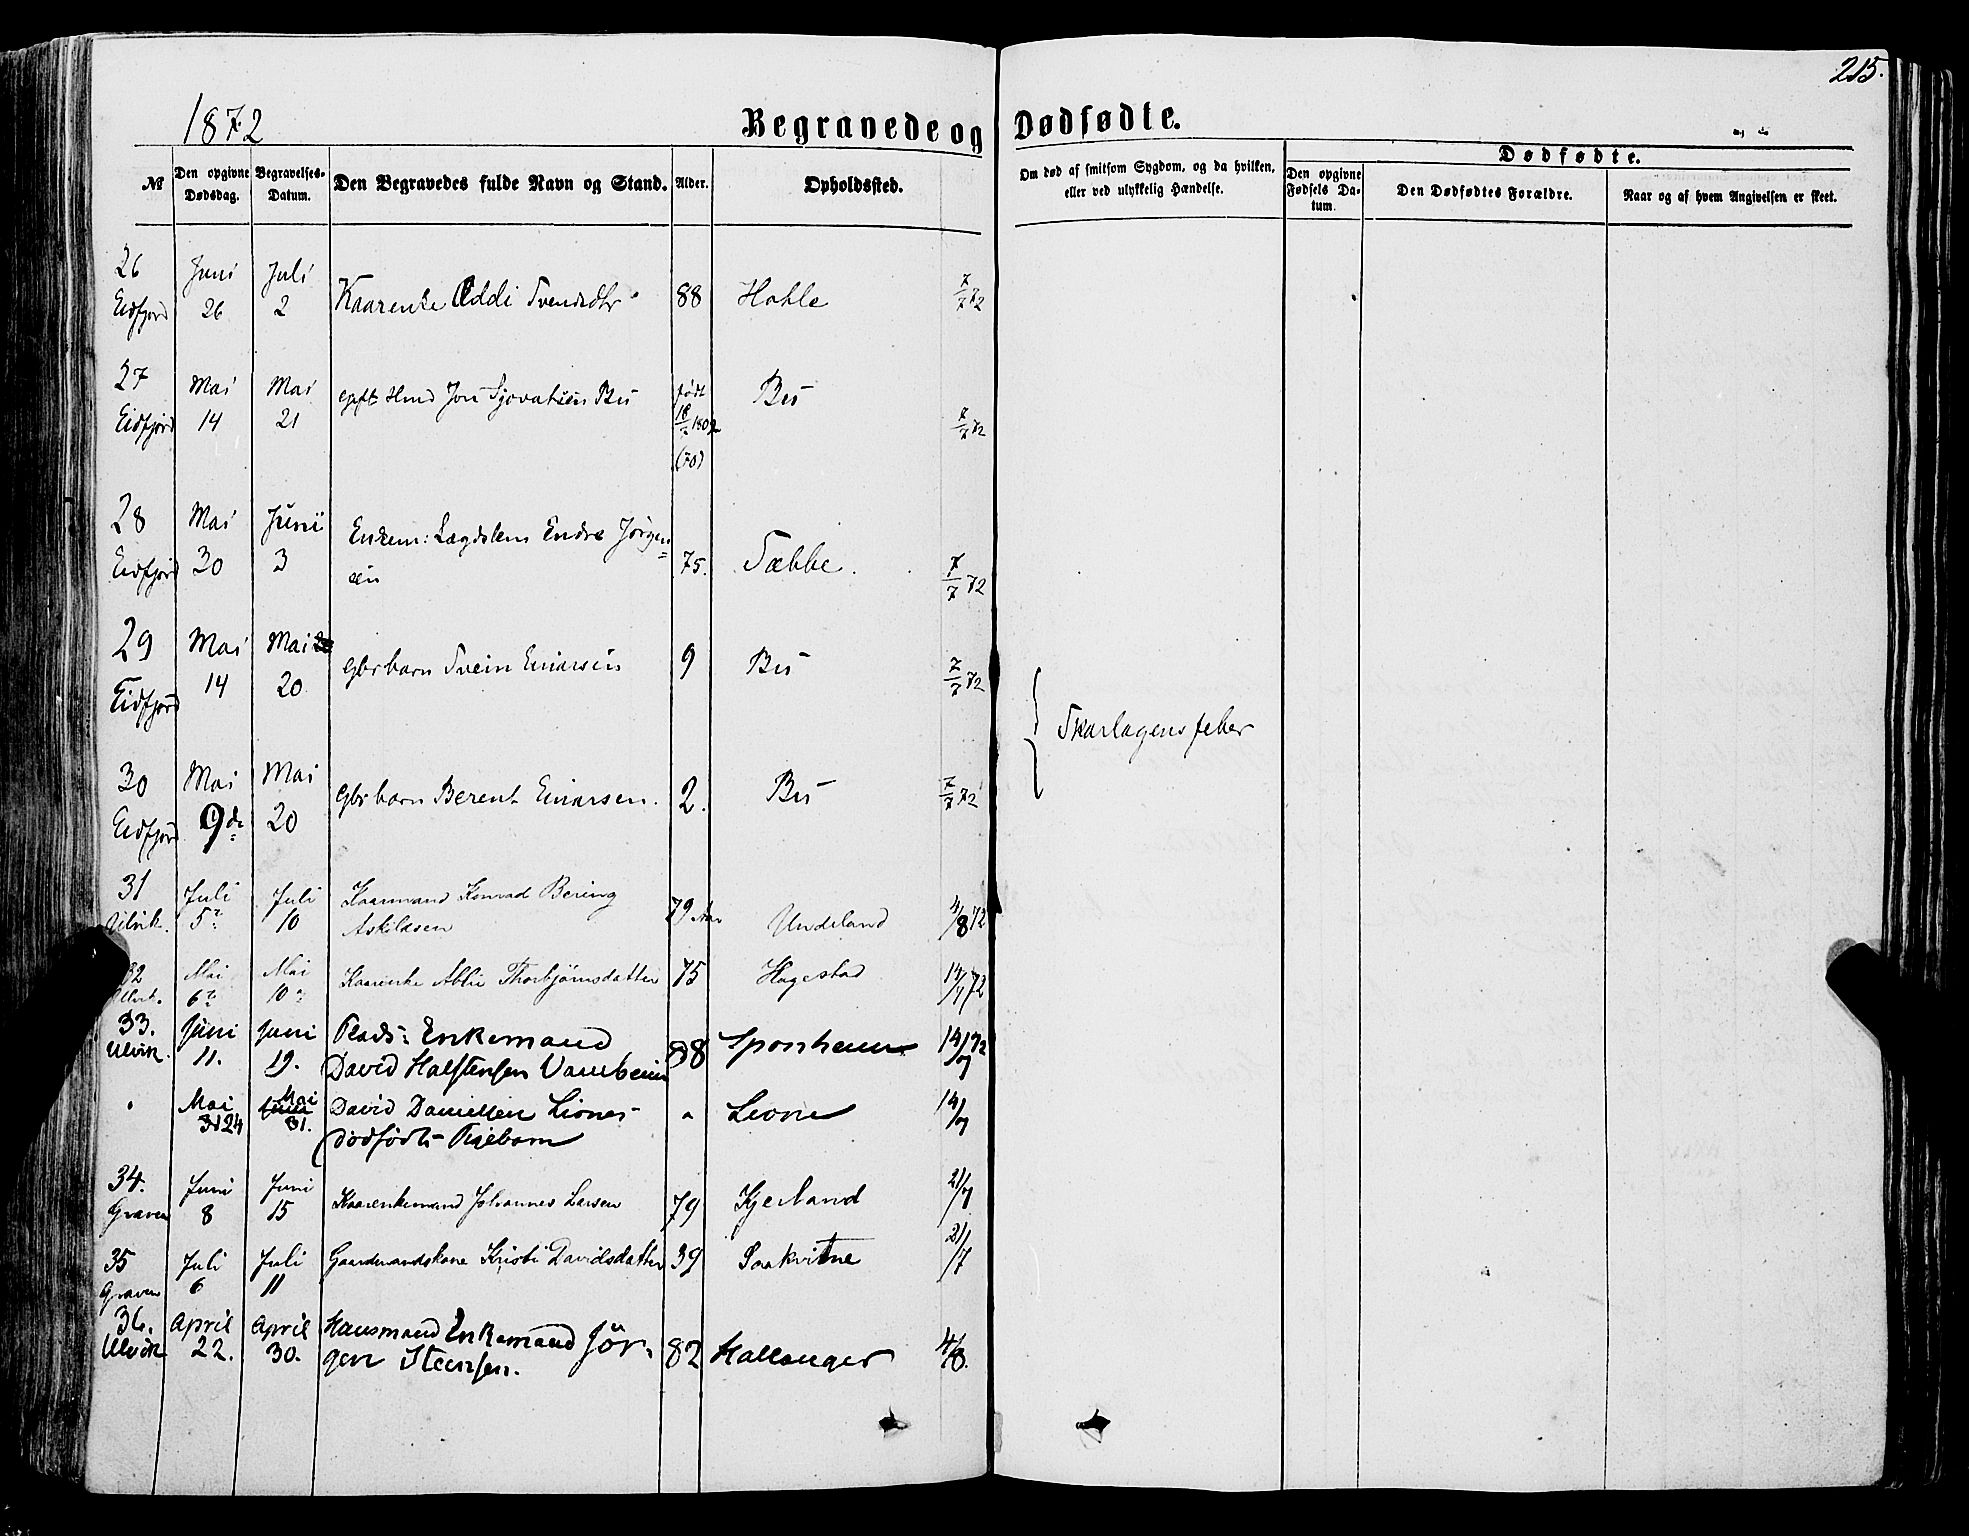 215.
1872
Begravede og Dødfødte.
№
Den opgivne Dødsdag.
Begravelses-Datum.
Den Begravedes fulde Navn og Stand.
Alder.
Opholdssted.
Om død af smitsom Sygdom, og da hvilken, eller ved ulykkelig Hændelse.
Dødfødte.
Den opgivne Fødsels Datum.
Den Dødfødtes Forældre.
Naar og af hvem Angivelsen er skeet.
26 Juni Juli
Eidfjord 26 2 Kaarenke Oddi Svendsdtr 88 Hohle 7/7 72
27 Mai Mai født
Eidfjord 14 21 Hmd Jon Sjovatsen Bu 1802 Bu 7/7 72
(70)
28 Mai Juni Enkem: Lægdslem Endre Jørgen=
Eidfjord 30 3 sen 75. Sæbbe. 7/7 72
29 Mai Mai
Eidfjord 14 20 Gbr barn Svein Einarsen 9 Bu 7/7 72
Skarlagensfeber
30 Mai Mai
Eidfjord 9de 20 Gbr barn Berent Einarsen. 2. Bu 7/7 72
31 Juli Juli Kaarmand Konrad Bering
Ulvik. 5 10 Askildsen 79 Aar Undeland 4/8 72
32 Mai Mai Kaarenke Thorbjørnsdatter 75 Hagestad 14/7 72
Ulvik. 6 10
33. Juni Juni Plads: Enkemand
Ulvik. 11. 19. David Halstensen Vambeim 88 Sponheim 14/7 72
Mai Mai David Danielsen Lione- " Lione 14/7
24 31. dødfødt Pigebarn
34. Juni Juni
Graven 8 15 Kaarenkemand Johannes Larsen 79 Kjerland 21/7
35 Juli Juli Gaardmandskone Kristi Davidsdatter 39 Saakvitne 21/7
Graven 6 11
36. April April Husmand Enkemand Jør-
Ulvik 22. 30. gen Steensen. 82 Hallanger 4/8.